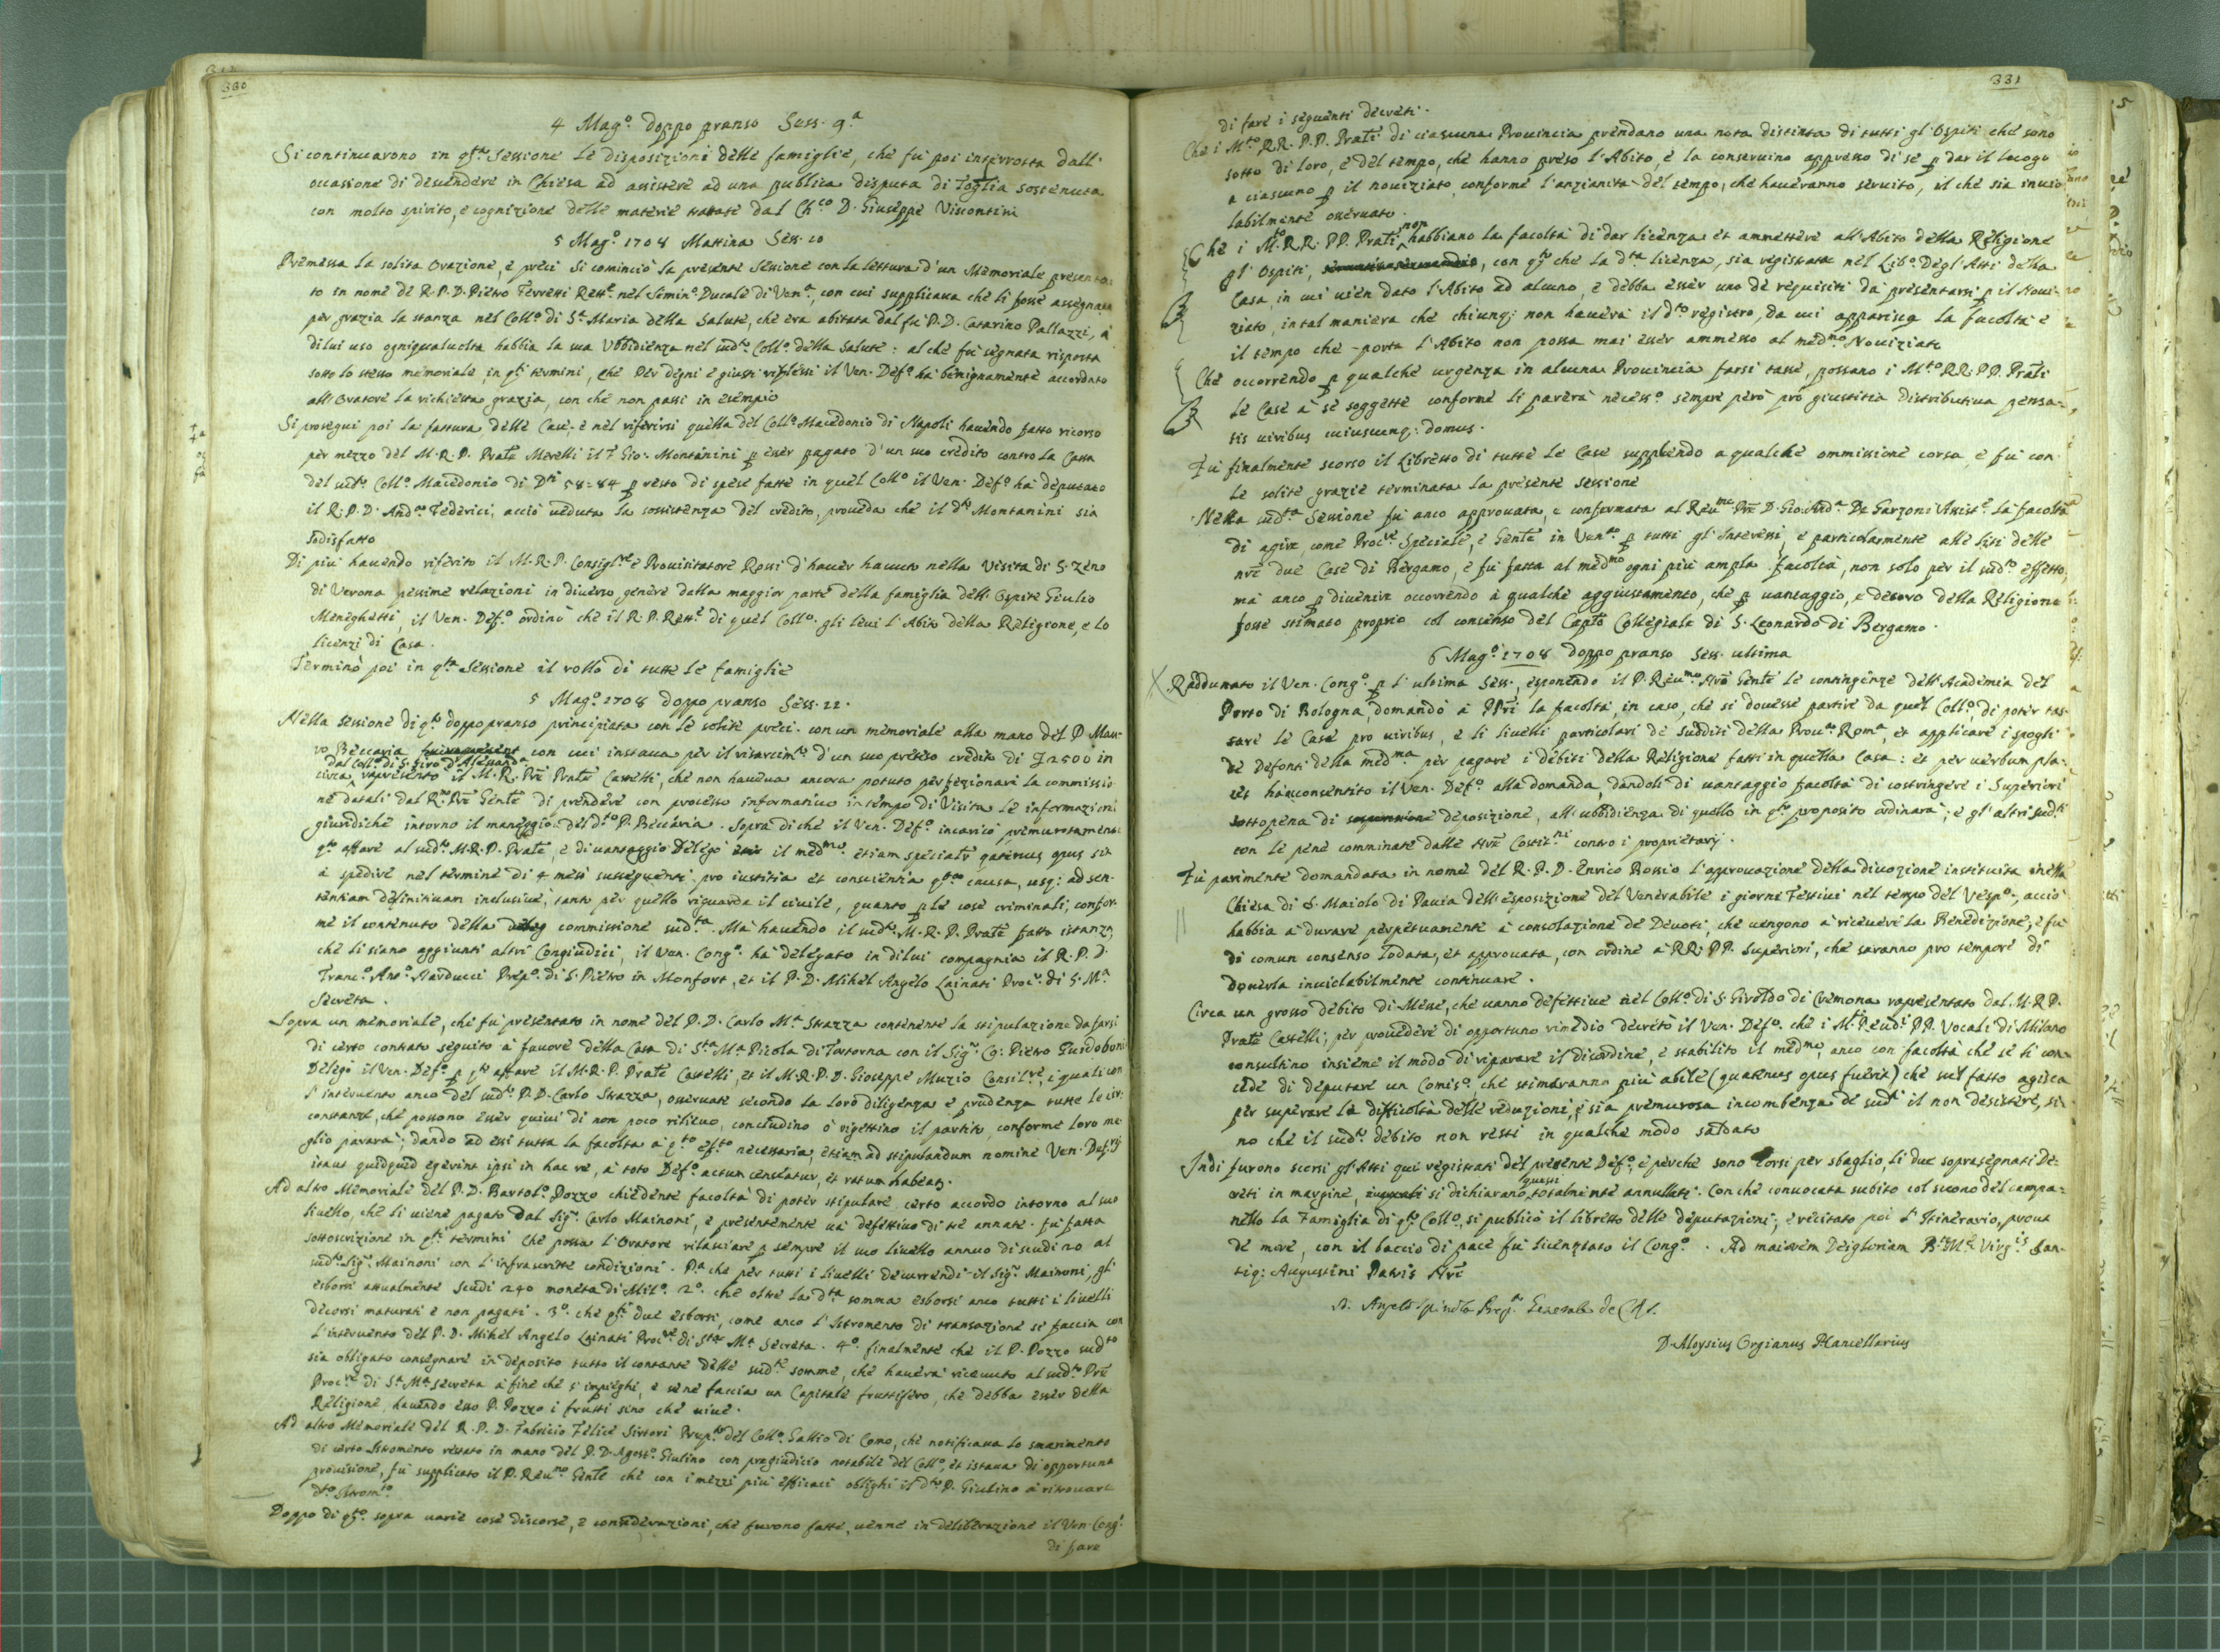 330
4 Mag.º doppo pranso Sess. 9.ª
Si continuarono in q.sta Sessione le disposizioni delle famiglie, che fù poi interrotta dall'
occasione di descendere in Chiesa ad assistere ad una publica disputa di Toglia sostenuta
con molto spirito, e cognizione delle materie trattate dal Ch.co D. Giuseppe Viscontini
5 Mag.º 1708 Mattina Sess. 10
Premessa la solita Orazione, e preci si cominciò la presente sessione con la lettura d'un Memoriale presenta:
to in nome de R. P. D. Pietro Ferretti Rett.e nel Semin.º Ducale di Ven.ª, con cui supplicava che li fosse assegnata
per grazia la stanza nel Coll.º di S.ª Maria della Salute, che era abitata dal fù P. D. Catarino Pallazzi, à
di lui uso ogniqualvolta habbia la sua Ubbidienza nel sud.to Coll.º della Salute: al che fù segnata risposta
sotto lo stesso memoriale, in q.sti termini, che Per degni e giusti riflessi il Ven. Def.º ha benignamente accordato
all'Oratore la richiesta grazia, con che non passi in esempio
Si proseguì poi la fattura delle Case, e nel riferirsi quella del Coll.º Macedonio di Napoli havendo fatto ricorso
per mezzo del M. R. P. Prāte Merelli il Gio: Montanini p esser pagato d'un suo credito contro la Cassa
del sud.to Coll.º Macedonio di D.ti 58=84 p resto di spese fatte in quel Coll.º il Ven. Def.º ha deputato
il R. P. D. And.ea Federici, acciò veduta la sossistenza del credito, proveda che il d.to Montanini sia
sodisfatto
Di più havendo riferito il M. R. P. Consigl.re e Provisitatore Rossi d'haver havuto nella Visita di S. Zeno
di Verona pessime relazioni in diverso genere dalla maggior parte della famiglia dell'Ospite Giulio
Meneghetti, il Ven. Def.º ordinò che il R. P. Rett.e di quel Coll.º gli levi l'Abito della Religione, e lo
licenzi di Casa.
Terminò poi in q.sta Sessione il rollo di tutte le famiglie
5 Mag.º 1708 doppo pranso Sess. 11.
Nella sessione di q.to doppo pranso principiata con le solite preci con un memoriale alla mano del P. Mau:
ro Beccaria con cui instava per il risarcim.to d'un suo preteso credito di £ 2500 in
dal Coll.º di S. Siro d'Alessand.ª
circa rapresentò il M. R. P̄re Prāte Castelli, che non haveva ancora potuto perfezionare la commissio
ne datali dal R.mo P̄re Gen̄te di prendere con processo informativo in tempo di Visita le informazioni
giuridiche intorno il maneggio del d.to P. Beccaria. Sopra di che il Ven. Def.º incaricò premurosamente
q.to affare al sud.to M. R. P. Prāte, e di vantaggio delegò il med.mo etiam specialr̄ quatenus opus sit
à spedire nel termine di 4 mesi susseguenti pro iustitia et conscientia causa, usq; ad sen:
tentiam definitivam inclusive, tanto per quello riguarda il civile, quanto p le cose criminali, confor:
me il contenuto della commissione sud.ta. Mà havendo il sud.to M. R. P. Prāte fatto istanza
che li siano aggiunti altri Congiudici, il Ven. Cong.º ha delegato in di lui compagnia il R. P. D.
Franc.º Ant.º Narducci Prep.º di S. Pietro in Monfort, et il P. D. Mihel Angelo Lainati Proc.re di S. M.ª
Secreta.
Sopra un memoriale, che fu presentato in nome del P. D. Carlo M.ª Strazza continente la stipulazione da farsi
di certo contrato seguito à favore della Casa di S.ta M.ª Picola di Tortona con il Sig.r Co: Pietro Guidoboni
delegò il Ven. Def.º p q.to affare il M. R. P. Prāte Castelli, et il M. R. P. D. Gioseppe Muzio Consil.re, i quali con
l'intervento anco del sud.to P. D. Carlo Strazza, osservate secondo la loro diligenza e prudenza tutte le cir:
constanze, che possono esser quivi di non poco rilievo, concludino ò rigettino il partito, conforme loro me
glio parerà; dando ad essi tutta la facoltà à q.to ef.to necessaria, etiam ad stipulandum nomine Ven. Def.rij
itaut quidquid egerint ipsi in hac re, à toto Def.º actum censeatur, et ratum habeatr.
Ad altro Memoriale del P. D. Bartol.º Pozzo chiedente facoltà di poter stipulare certo accordo intorno al suo
livello, che li viene pagato dal Sig.r Carlo Mainoni, e presentemente và defettivo di trè annate. fù fatta
sottoscrizione in q.sti termini che possa l'Oratore rilasciare p sempre il suo livello annuo di scudi 20 al
sud.to Sig.r Mainoni con l'infrascritte condizioni. P.ª che per tutti i livelli decurrendi il Sig.r Mainoni, gli
esborsi attualmente scudi 240 moneta di Mil.º 2.º che oltre la d.ta somma esborsi anco tutti i livelli
decorsi maturati e non pagati. 3.º che q.sti due esborsi, come anco l'Istromento di transazione si faccia con
l'intervento del P. D. Mihel Angelo Lainati Proc.re di S.ta M.ª Secreta. 4.º finalmente che il P. Pozzo sud.to
sia obligato consegnare in deposito tutto il contante delle sud.te somme, che haverà ricevuto al sud.to P̄re
Proc.re di S.ª M.ª Secreta à fine che s'impieghi, e se ne faccia un Capitale fruttifero, che debba esser della
Religione, havendo esso P. Pozzo i frutti sino che vive.
Ad altro Memoriale del R. P. D. Fabricio Felice Sirtori Prep.to del Coll.º Gallio di Como, che notificava lo smarimento
di certo Istromento restato in mano del P. D. Agost.º Giulino con pregiudicio notabile del Coll.º, et istava di opportuna
provisione, fù supplicato il P. Reu.mo Gen̄te che con i mezzi più efficaci oblighi il d.to P. Giulino à ritrovare
d.to Istrom.to
Doppo di q.sto sopra varie cose discorse, e considerazioni, che furono fatte, venne in deliberazione il Ven. Cong.º
di fare
331
di fare i seguenti decreti.
Che i M.to RR. P.P. Prāti di ciascuna Provincia prendano una nota distinta di tutti gl'Ospiti che sono
sotto di loro, e del tempo, che hanno preso l'Abito, e la conservino appresso di sè p dar il luogo
a ciascuno p il noviziato, conforme l'anzianità del tempo, che haveranno servito, il che sia invio
labilmente osservato.
Che i M.to R.R. PP. Prāti non habbiano la facoltà di dar licenza et ammettere all'Abito della Religione
gl'Ospiti, con q.to che la d.ta licenza, sia registrata nel Lib.º degl'Atti della
Casa, in cui vien dato l'Abito ad alcuno, e debba esser uno de requisiti da presentarsi p il Novi:
ziato, in tal maniera che chiunq; non haverà il d.to registro, da cui apparisca la facoltà e
il tempo che porta l'Abito non possa mai esser ammesso al med.mo Noviziato
Che occorrendo p qualche urgenza in alcuna Provincia farsi tasse, possano i M.to RR. PP. Prāti
le Case à sè soggette conforme li parerà necess.º sempre però pro giustitia distributiva pensa:
tis viribus cuiuscunq; domus.
Fù finalmente scorso il Libretto di tutte le Case supplendo a qualche ommissione corsa, e fù con
le solite grazie terminata la presente sessione
Nella sud.ta Sessione fù anco approvata, e confermata al Reu.mo P̄re D. Gio: And.ª De Garzoni Assist.e la facoltà
di agire come Proc.re Speciale, e Gen̄te in Ven.ª p tutti gl'Interessi, e particolarmente alle liti delle
nr̄e due Case di Bergamo, e fù fatta al med.mo ogni più ampla facoltà, non solo per il sud.to effetto,
mà anco p divenire occorrendo à qualche aggiustamento, che p vantaggio, e decoro della Religione
fosse stimato proprio col consenso del Cap̄to Collegiale di S. Leonardo di Bergamo.
6 Mag.º 1708 doppo pranso Sess. ultima
Raddunato il Ven. Cong.º p l'ultima Sess., esponendo il P. Reu.mo Nr̄o Gen̄te le contingenze dell'Academia del
Porto di Bologna, domandò à P̄Pri la facoltà, in caso, che si dovesse partire da quel Coll.º, di poter tas:
sare le Case pro viribus, e li livelli particolari de sudditi della Prou.ª Rom.ª, et applicare i spogli
de defonti della med.ma per pagare i debiti della Religione fatti in quella Casa: et per verbum pla:
cet hà consentito il Ven. Def.º alla domanda, dandoli di vantaggio facoltà di costringere i Superiori
sotto pena di deposizione, all'ubbidienza di quello in q.to proposito ordinarà; e gl'altri sud.ti
con le pene comminate dalle Nr̄e Costit.ni contro i proprietarij.
Fù parimente domandata in nome del R. P. D. Enrico Rossio l'approvazione della divozione instituita nella
Chiesa di S. Maiolo di Pavia dell'esposizione del Venerabile i giorni Festivi nel tempo del Vesp.º, acciò
habbia à durare perpetuamente à consolazione de Devoti, che vengono à ricevere la Benedizione, e fù
di comun consenso lodata, et approvata, con ordine à RR. PP. Superiori, che saranno pro tempore di
doverla inviolabilmente continuare.
Circa un grosso debito di Messe, che vanno defettive nel Coll.º di S. Giroldo di Cremona rapresentato dal M. R. P.
Prāte Castelli; per provedere di opportuno rimedio decretò il Ven. Def.º che i M.ti Reud.i PP. Vocali di Milano
consultino insieme il modo di riparare il disordine, e stabilito il med.mo, anco con facoltà che se li con:
cede di deputare un Comis.º che stimaranno più abile (quatenus opus fuerit) che sul fatto agisca
per superare le difficoltà delle reduzioni, e sia premurosa incombenza de sud.i il non desistere, si:
no che il sud.to debito non resti in qualche modo saldato
Indi furono scorsi gl'Atti quì registrati del presente Def.º, e perche sono corsi per sbaglio, li due soprasegnati De:
creti in margine, si dichiarano quasi totalmente annullati. Con che convocata subito col suono del campa=
nello la Famiglia di q.to Coll.º, si publicò il libretto delle deputazioni, e recitato poi l'Itinerario, prout
de more, con il baccio di pace fù licenziato il Cong.º. Ad maiorem Dei gloriam B. M.ę Virg.is San:
tiq; Augustini Patris Nr̄i
D. Angelo Spinola Prep.º Generale de C. R. S.
D. Aloysius Orgianus Cancellarius